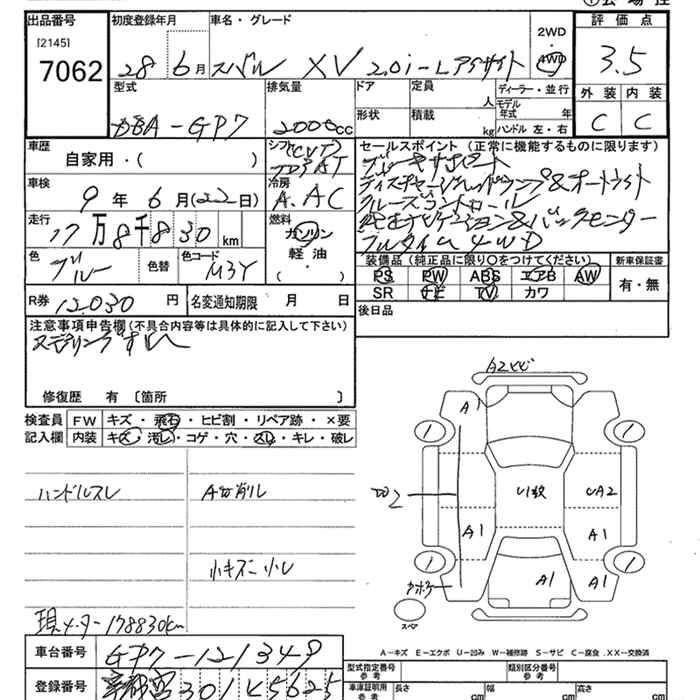 出品番号 初度登録年月 車名・グレード 評価点
[2145] 2WD
7062 28 6月 スバル XV 2.0i-L アイサイト 4WD 3.5
型式 排気量 ドア 定員 人 ディーラー・並行 外装 内装
DBA-GP7 2000cc 形状 積載 kg モデル年式 年 C C
ハンドル 左・右
車歴 自家用・( ) シフト(CVT) セールスポイント(正常に機能するものに限ります)
AT
車検 9年6月(22日) 冷房 A.AC ディスチャージヘッドランプ&オートライト
クルーズコントロール
走行 17万8千830km 燃料 ガソリン 純正ナビゲーション&バックセンサー
軽油 フルタイム4WD
・( )
色 ブルー 色替 色コード M3Y 装備品(純正品に限り○をつけてください) 新車保証書
PS PW ABS エアB AW 有・無
SR ナビ TV カワ
R券 12,030円 名変通知期限 月 日 後日品
注意事項申告欄(不具合内容等は具体的に記入して下さい)
修復歴 有〔箇所 〕
検査員 FW キズ・飛石・ヒビ割・リペア跡・×要
記入欄 内装 キズ・汚レ・コゲ・穴・スレ・キレ・破レ
A1
1 1
ハンドルスレ A廿削レ W2 U1数 UA2
A1 A1
小キズ 小レ 1 A1 A1 1
スペア
現メーター178830km
A-キズ E-エクボ U-凹み W-補修跡 S-サビ C-腐食 XX-交換済
車台番号 GP7-121349
型式指定番号 参考 類別区分番号 参考
登録番号 宇都宮301 5625
車庫証明用 参考 長さ cm 幅 cm 高さ cm